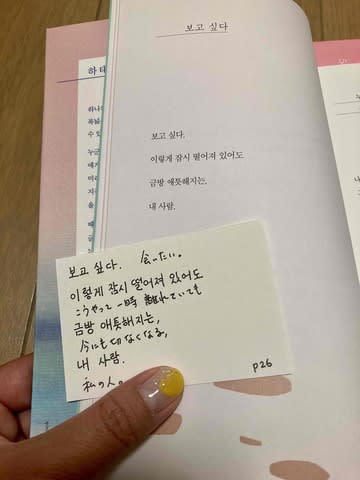 보고 싶다
보고 싶다.
이렇게 잠시 떨어져 있어도
금방 애틋해지는,
내 사람.
하태
하나
수 있
누군
얘기
미리
보고 싶다. 会いたい。
이렇게 잠시 떨어져 있어도
こうやって一時離れていても
금방 애틋해지는,
今にも切なくなる,
내 사람.
私の人。
p26